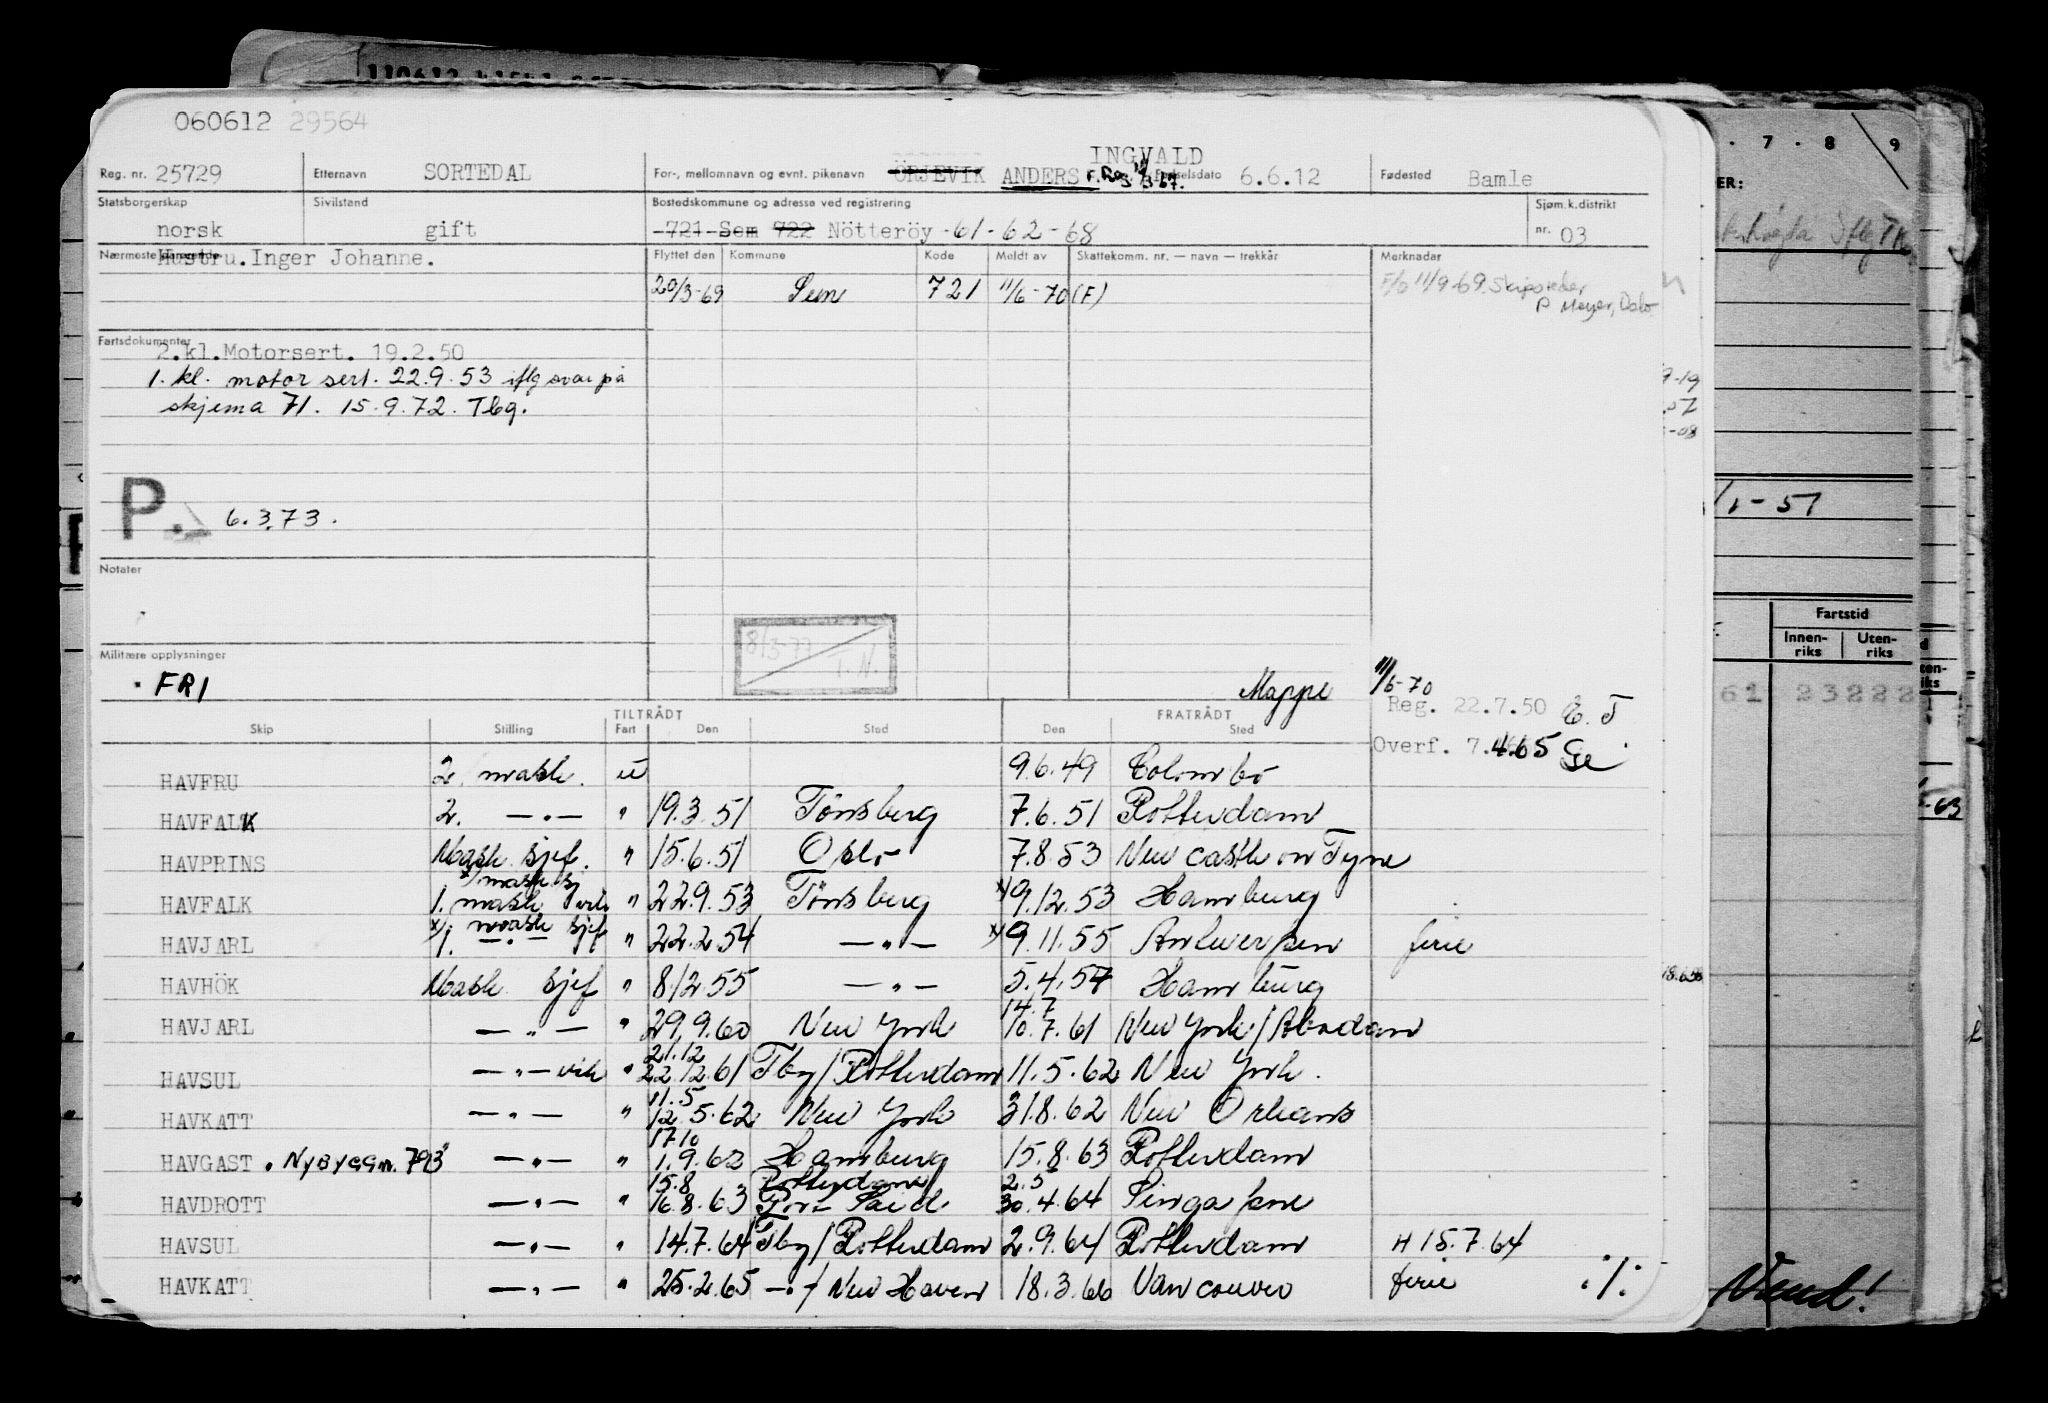 060612 29564
INGVALD
Reg. nr. 25729 Etternavn SORTEDAL For-, mellomnavn og evnt. pikenavn ÖRJEVIK ANDERS Fødselsdato 6.6.12 Fødested Bamle
Statsborgerskap Sivilstand Bostedskommune og adresse ved registrering Sjøm.k.distrikt
norsk gift -721-Sem 722 Nötteröy -61-62-68 nr. 03
Nærmeste Hustru.Inger Johanne. Flyttet den Kommune Kode Meldt av Skattekomm. nr. — navn — trekkår Merknader
20/3-69 Sem 721 11/6-70 (F) 11/9-69. Skipsreder
P Meyer, Oslo
Fartsdokumenter
2.kl.Motorsert. 19.2.50
1. kl. motor sert. 22.9.53 iflg svar på
skjema 71. 15.9.72. Tbg.
P. 6.3.73.
Notater
8/3-77
T.N.
Militære opplysninger
FRI Mappe 11/6-70
Reg. 22.7.50 E.T
TILTRÅDT FRATRÅDT
Skip Stilling Fart Den Sted Den Sted
Overf. 7.4.65 Se
HAVFRU 2. mask. u 9.6.49 Colombo
HAVFALK 2. —"— " 19.3.51 Tönsberg 7.6.51 Rotterdam
HAVPRINS Mask. sjef. " 15.6.51 Oslo 7.8.53 New castle on Tyne
x) mask. sj
HAVFALK 1. mask vik " 22.9.53 Tönsberg x) 9.12.53 Hamburg
x) mask sjef
HAVJARL 1. —"— " 22.2.54 —"— x) 9.11.55 Antwerpen ferie
HAVHÖK Mask. sjef " 8/2.55 —"— 5.4.57 Hamburg
14.7
HAVJARL —"— " 29.9.60 New York 10.7.61 New York/A
21.12
HAVSUL —"— vik " 22.12.61 Tbg/Rotterdam 11.5.62 New York.
11.5
HAVKATT —"— " 12.5.62 New York 31.8.62 New Orleans
17.10
HAVGAST . NYBYGG nr. 793 —"— " 1.9.62 Hamburg 15.8.63 Rotterdam
15.8 Rotterdam 2.5
HAVDROTT —"— " 16.8.63 Port Said 30.4.64 Singapore
HAVSUL —"— " 14.7.64 Tbg/Rotterdam 2.9.64 Rotterdam H 15.7.64
HAVKATT —"— " 25.2.65 —"—/New Haven 18.3.66 Vancouver ferie ./.
7 . 8 9
ER:
/1-51
Fartstid
Innen-
riks
Uten-
riks
61 23222
-63
Vend!